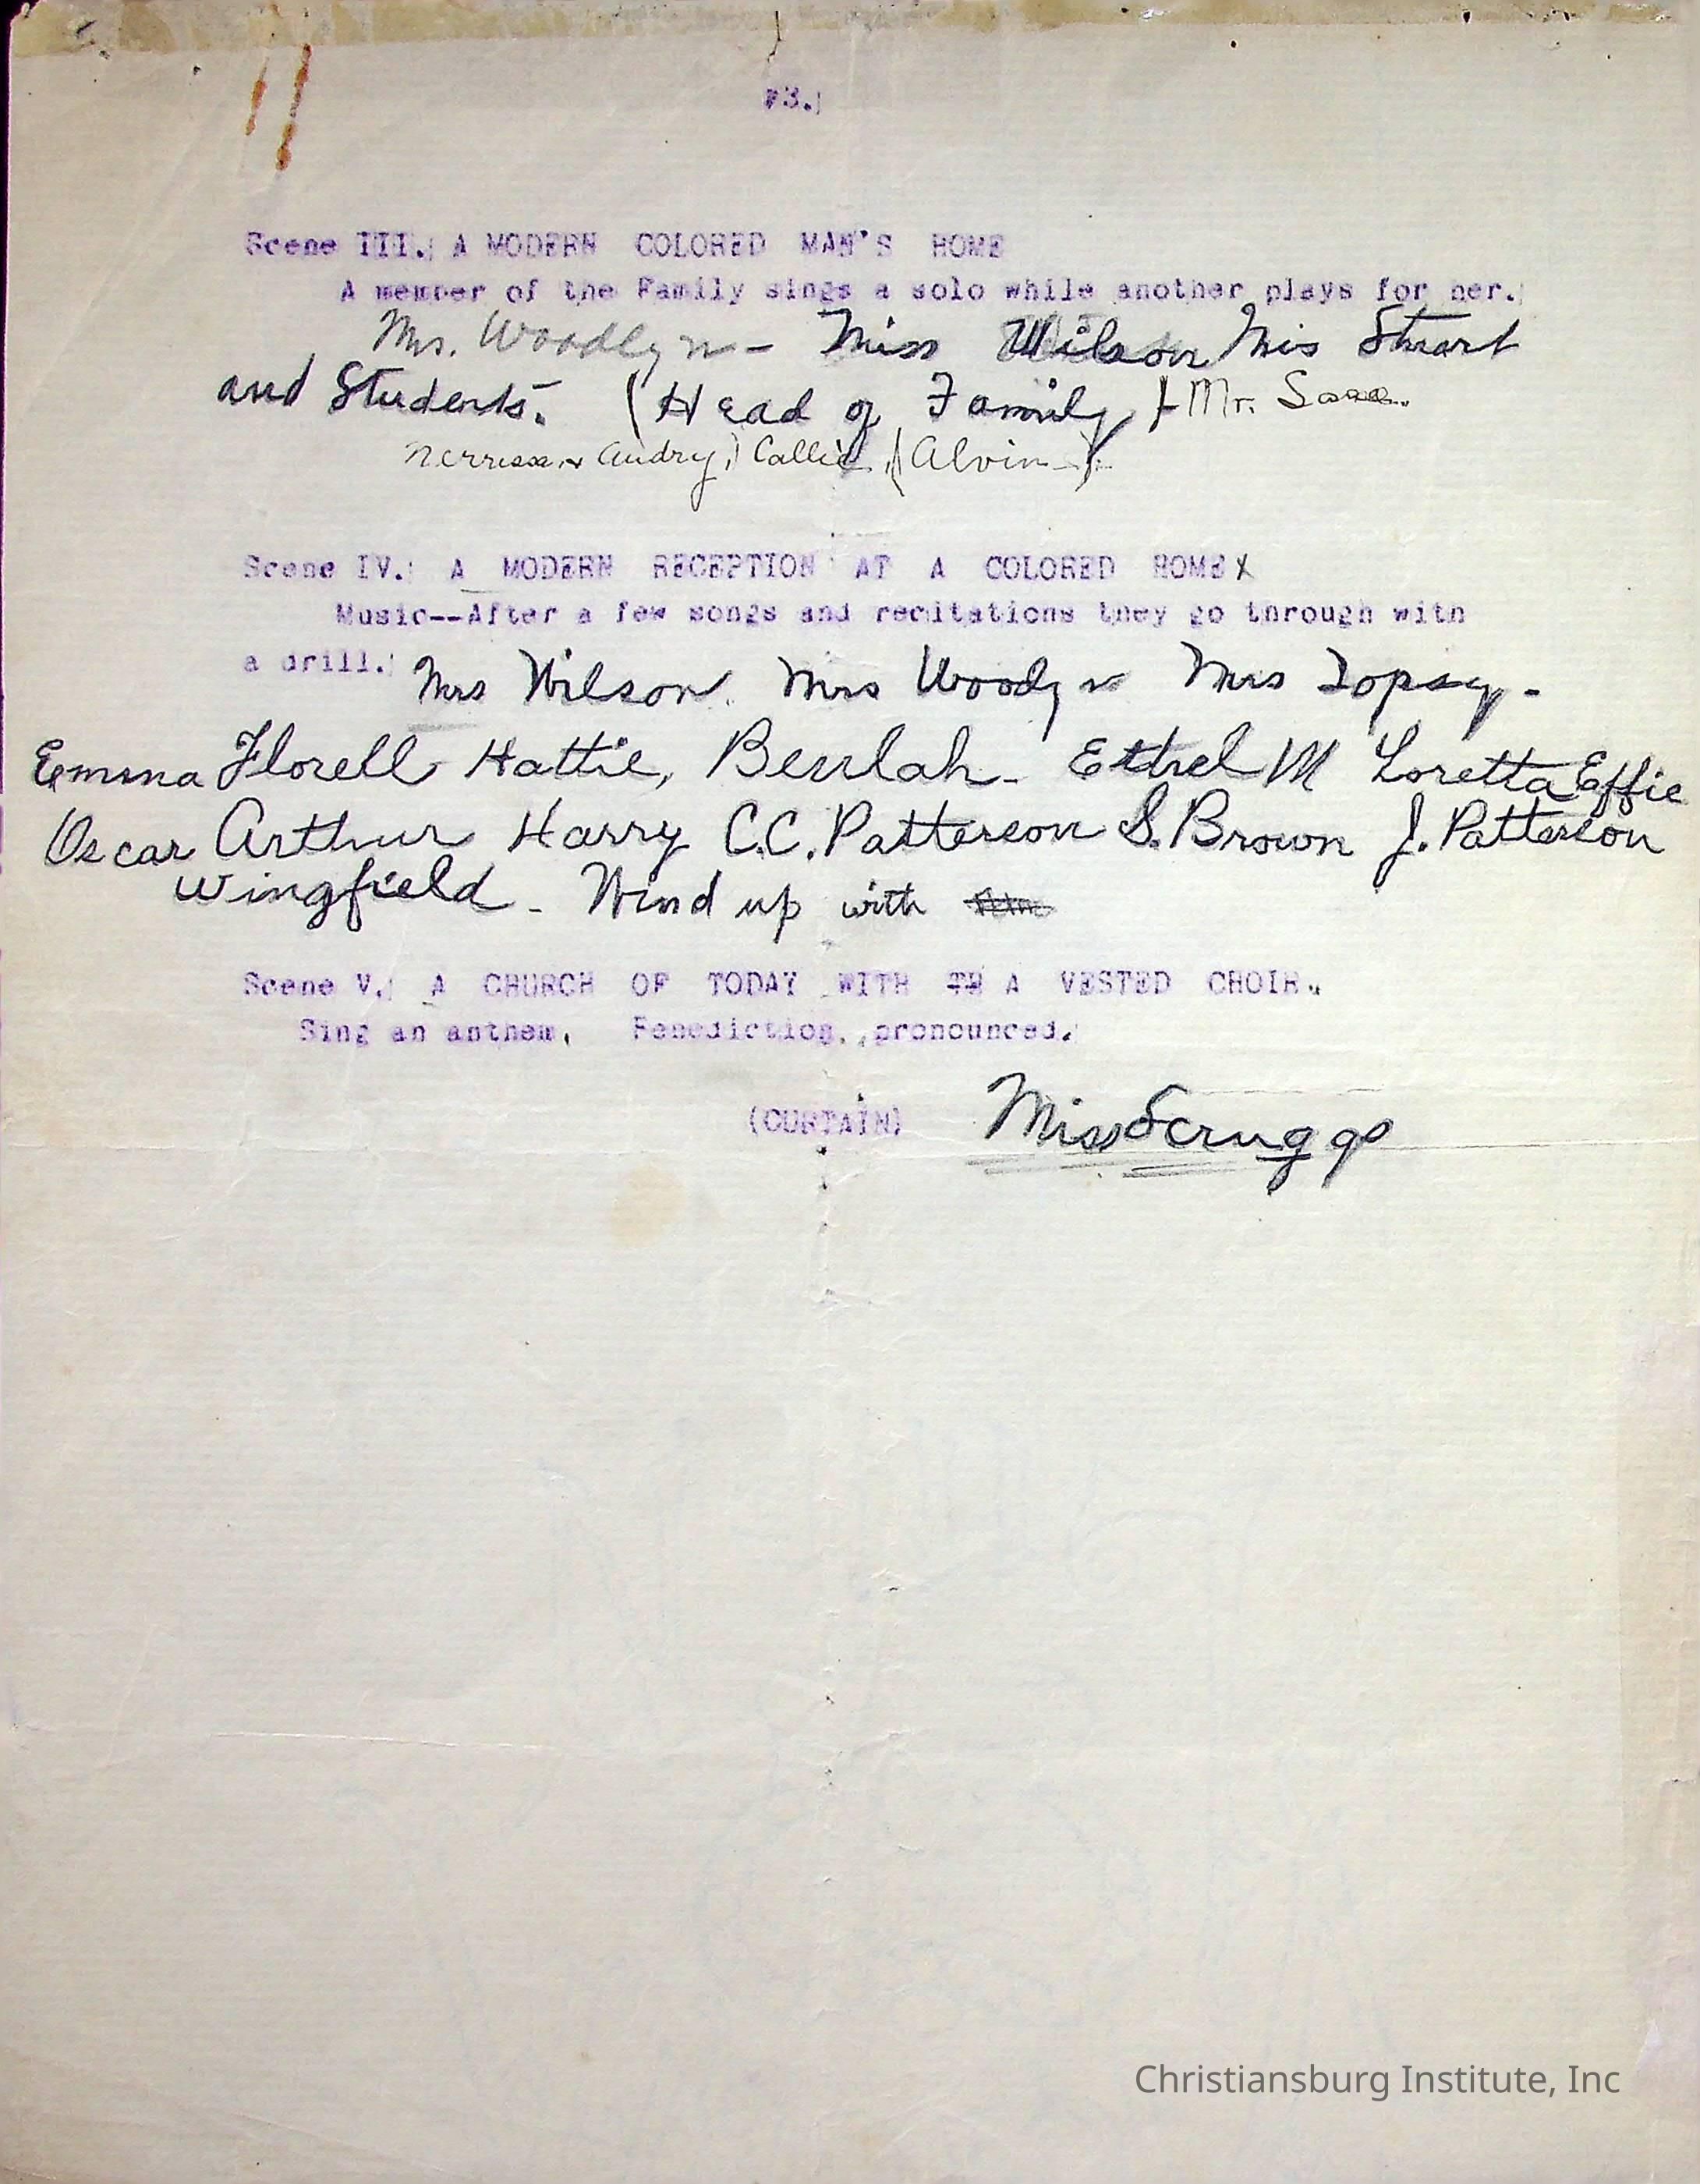 #3.
Scene III. A MODERN COLORED MAN'S HOME
A member of the Family sings a solo while another plays for her.
Mrs. Woodlyn - Miss Wilson Mis Stuart
and Students. (Head of Family) Mr.
Audry, Callie, (Alvin)
Scene IV. A MODERN RECEPTION AT A COLORED HOME
Music--After a few songs and recitations they go through with
a drill. Mrs Wilson. Mrs Woodyn Mrs Topsy -
Emma Florell Hattie, Beulah - Ethel M Loretta Effie
Oscar Arthur Harry C.C. Patterson S. Brown J. Patterson
Wingfield - Wind up with
Scene V. A CHURCH OF TODAY WITH TH A VESTED CHOIR.
Sing an anthem, Benediction, pronounced.
(CURTAIN) Miss Scruggs
Christiansburg Institute, Inc